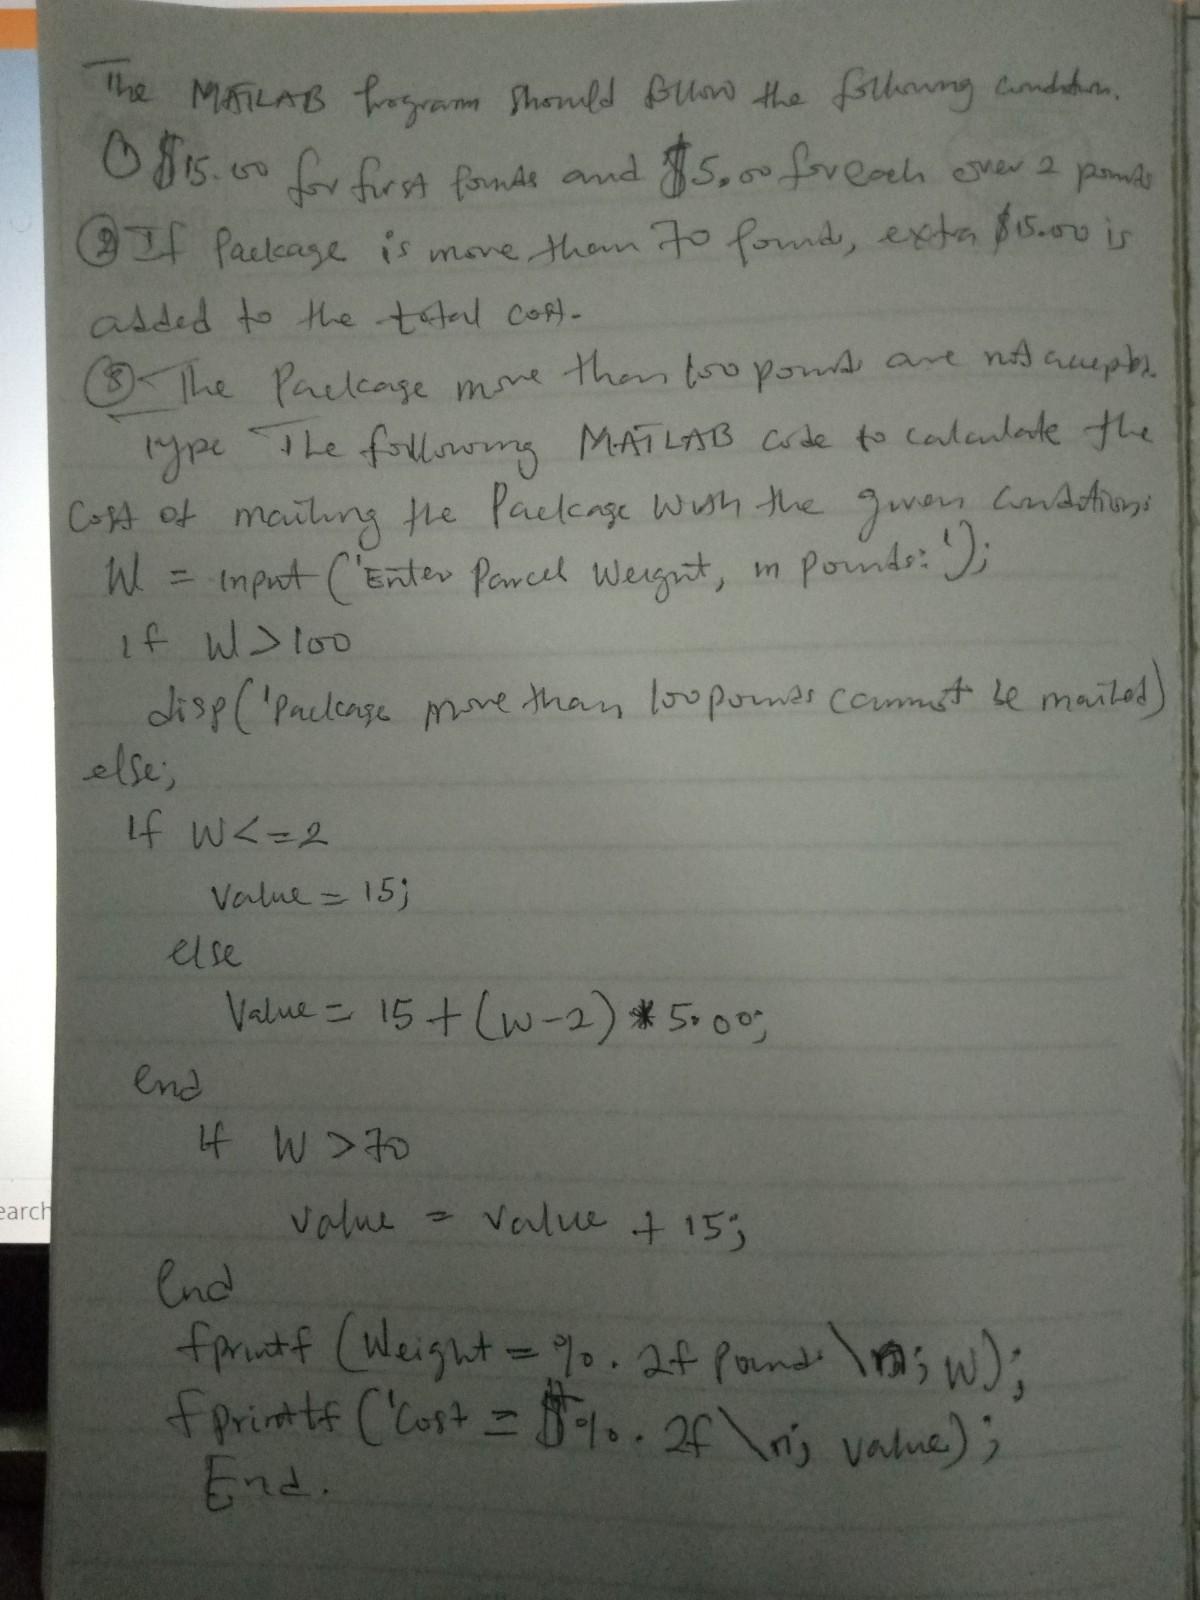 The MATLAB Program should follow the following condition.
① $15.00 for first pounds and $5.00 for each over 2 pounds
② If Package is more than 70 pound, extra $15.00 is
added to the total cost.
③ The Package more than 100 pounds are not accepta
Type The following MATLAB code to calculate the
Cost of mailing the Package with the given conditions
W = input ('Enter Parcel Weight, in pounds: ');
if W > 100
disp('Package more than 100 pounds cannot be mailed)
else;
If W<=2
Value = 15;
else
Value = 15 + (w-2) * 5.00;
end
If W > 70
value = value + 15;
End
fprintf (Weight = %. 2f Pound \n; W);
fprintf ('Cost = $%. 2f \n'; value);
End.
earch